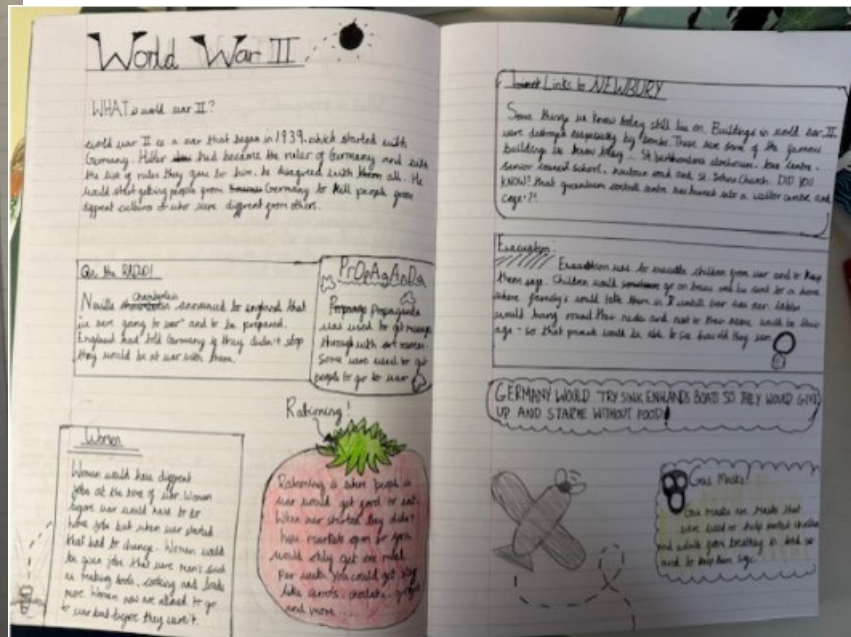 World War II
WHAT is world war II?
world war II is a war that began in 1939, which started with
Germany. Hitler had became the ruler of Germany and with
the list of rules they gave to him, he disagreed with them all. He
would start getting people from Germany to kill people from
different cultures or who were different from others.
On the RADIO!
Neville Chamberlain announced to england that
"we are going to war" and to be prepared.
England had told Germany if they didn't stop
they would be at war with them.
PrOpAgAnDa
Propaganda
was used to get message
through with
some were used to get
people to go to war
Women
Women would have different
jobs at the time of war. Women
before war would have to do
home jobs but when war started
that had to change. Women would
be given jobs that were men's such
as making tools, cooking and loads
more. Women now are allowed to go
to war but before they weren't.
Rationing!
Rationing is when people in
war would get food to eat.
When war started they didn't
have markets open so you
would only get one meal
per week. You could get
like carrots, chocolate,
and more....
Links to NEWBURY
Some things we know today still live on. Buildings in world war II
were destroyed especially by bombs. These are some of the famous
buildings we know today...St bartholomews
senior council school, newtown road and St. Johns Church. DID YOU
KNOW? that greenham control centre has turned into a visitor centre and
cafe?!
Evacuation:
Evacuation was to evacuate children from war and to keep
them safe. Children would go on trains and be sent to a home
where family's would take them in until war was over. labels
would hang round their necks and next to their name would be their
age - so that people would be able to see how old they were
GERMANY WOULD TRY SINK ENLANDS BOATS SO THEY WOULD GIVE
UP AND STARVE WITHOUT FOOD!
Gas Masks!
Gas masks are masks that
were used to help protect children
and adults from breathing in bad air
and to keep them safe.